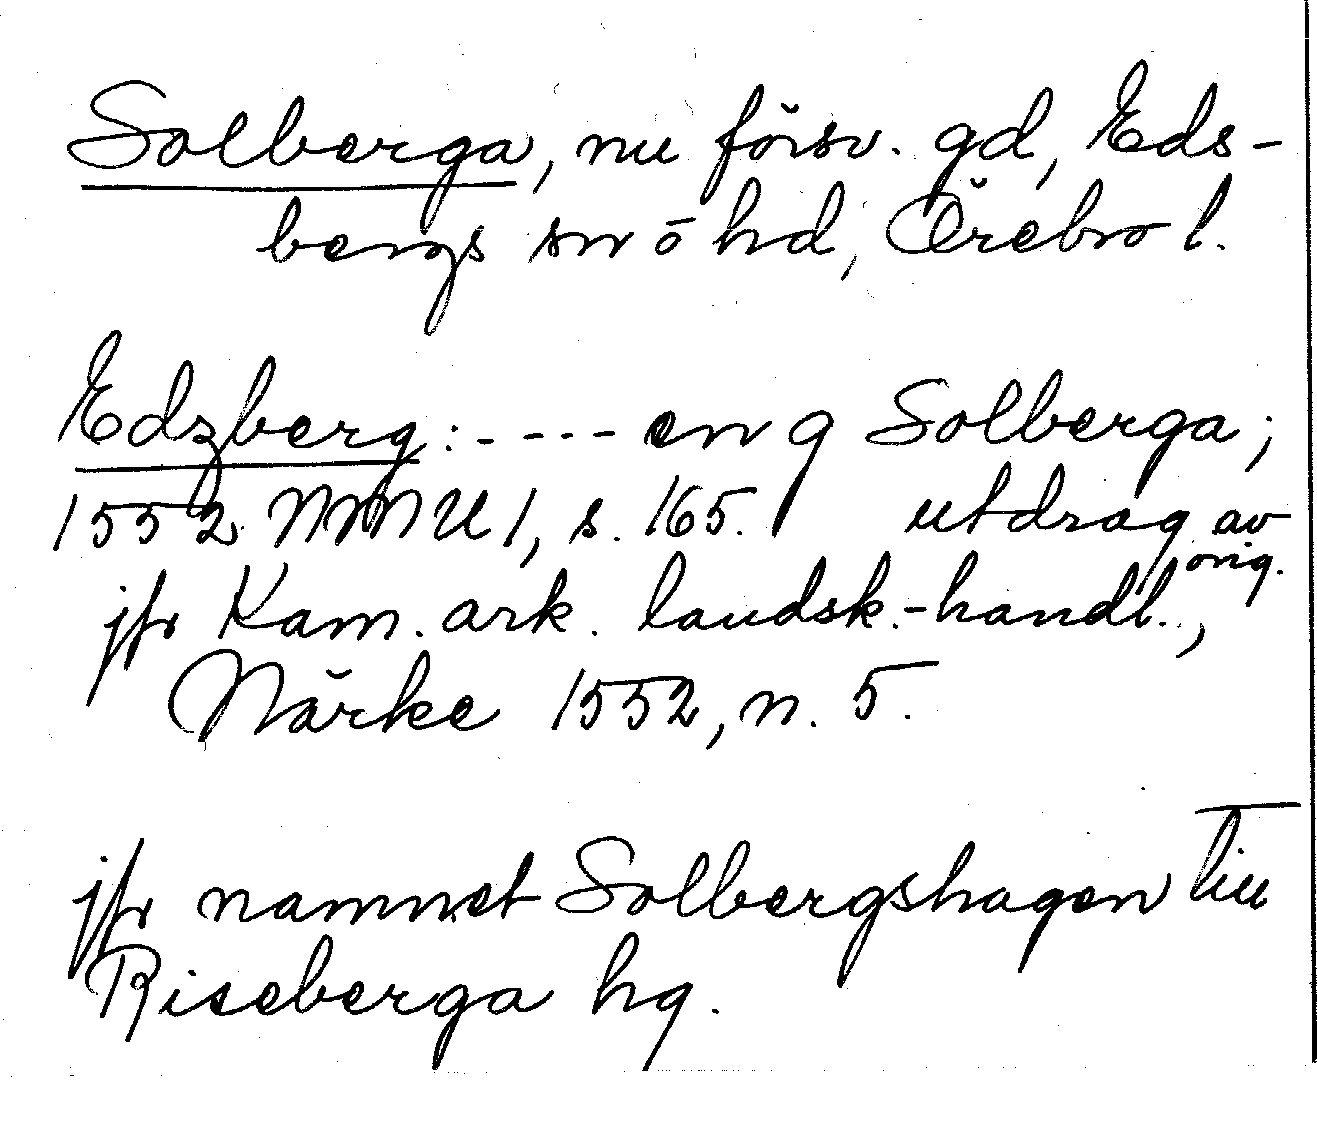 Solberga, nu försv. gd, Eds-
bergs sn o hd, Örebro l.
Edzberg: - - - - en q Solberga;
1552 NMU 1, s. 165. utdrag av
orig.
jfr Kam. ark. landsk.-handl.,
Närke 1552, n. 5.
jfr namnet Solbergshagen till
Riseberga hg.